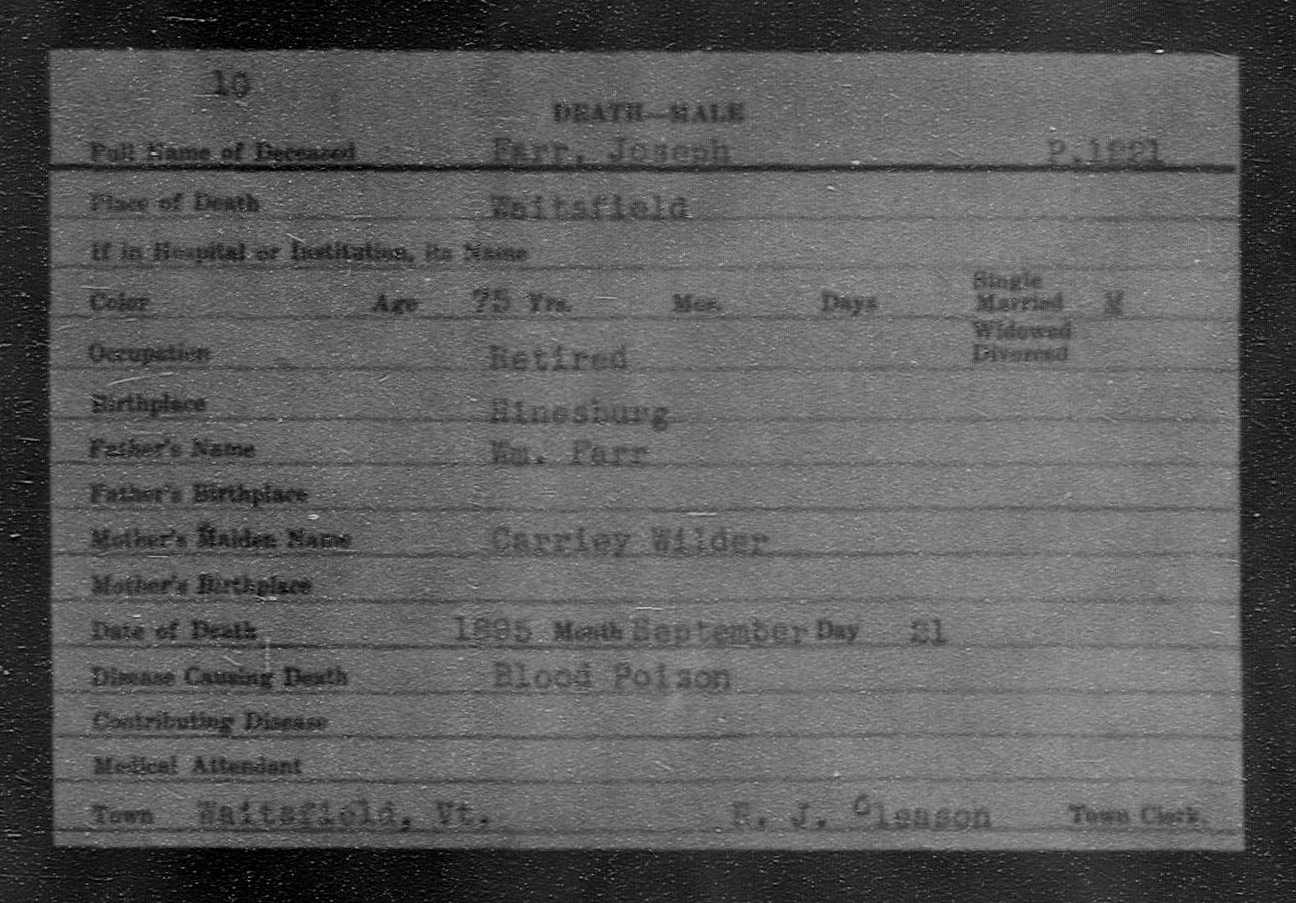 10
DEATH—MALE
Full Name of Deceased Farr, Joseph P.1821
Place of Death Waitsfield
If in Hospital or Institution, its Name
Color Age 75 Yrs. Mos. Days Single Married M
Widowed
Occupation Retired Divorced
Birthplace Hinesburg
Father's Name Wm. Farr
Father's Birthplace
Mother's Maiden Name Carriey Wilder
Mother's Birthplace
Date of Death 1895 Month September Day 21
Disease Causing Death Blood Poison
Contributing Disease
Medical Attendant
Town Waitsfield, Vt. J. Gleason Town Clerk.